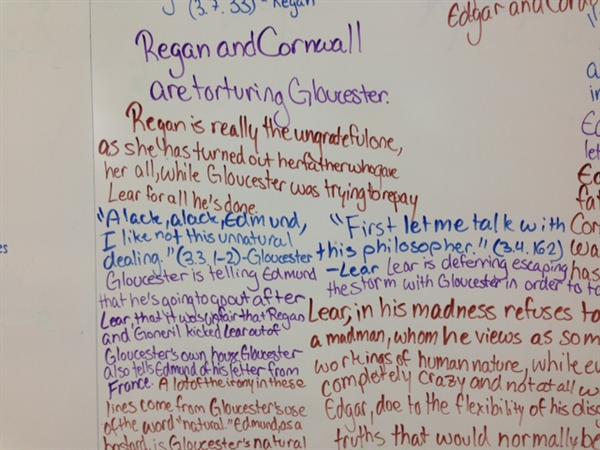 (3.7.33) - Regan
Edgar and
Regan and Cornwall
are torturing Gloucester.
Regan is really the ungrateful one,
as she has turned out her father who gave
her all, while Gloucester was trying to repay
Lear for all he's done.
"Alack, alack, Edmund,
I like not this unnatural
dealing." (3.3.1-2)-Gloucester
Gloucester is telling Edmund
that he's going to go out after
Lear, that it was unfair that Regan
and Goneril kicked Lear out of
Gloucester's own house. Gloucester
also tells Edmund of his letter from
France. A lot of the irony in these
lines come from Gloucester's use
of the word "natural." Edmund, as a
bastard, is Gloucester's natural
"First let me talk with
this philosopher." (3.4.162)
-Lear Lear is deferring escaping
the storm with Gloucester in order to
Lear, in his madness refuses to
a madman, whom he views as
workings of human nature, while
completely crazy and not at all
Edgar, due to the flexibility of his
truths that would normally be